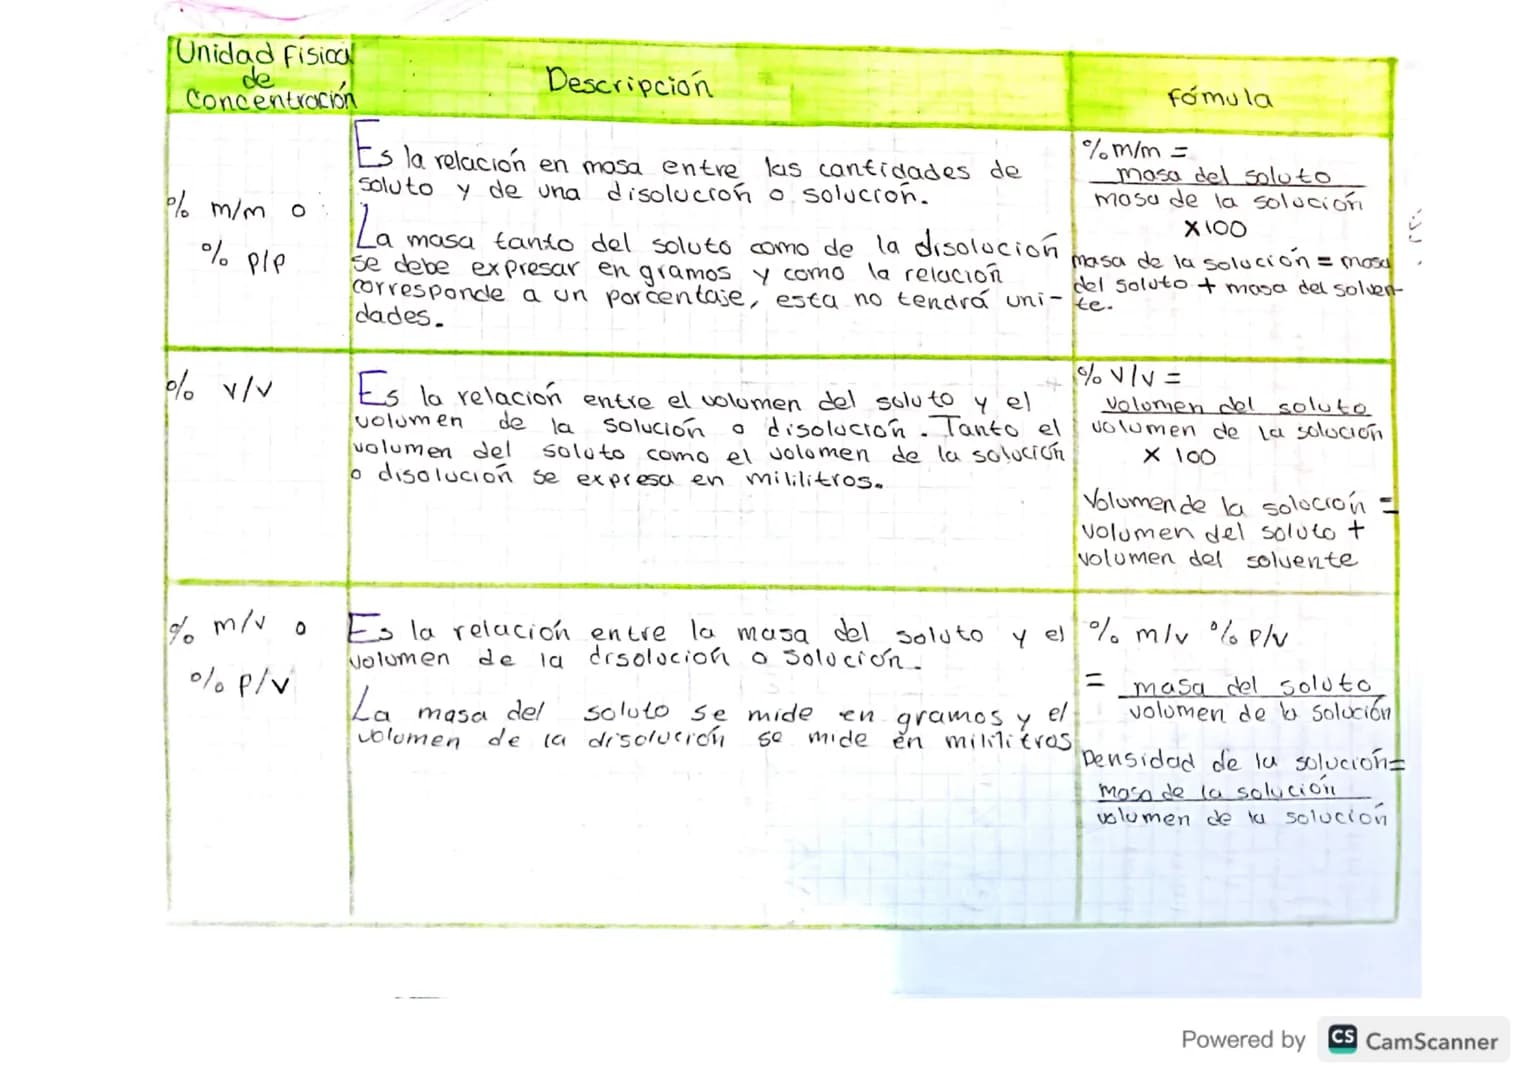 Unidad Física
de
Concentración
Descripción
fómula
% m/m o
% P/P
Es la relación en masa entre las cantidades de
soluto y de una disolución o solución.
La masa tanto del soluto como de la disolución
se debe expresar en gramos y como la relación
corresponde a un porcentaje, esta no tendrá uni-
dades.
% m/m =
masa del soluto
masa de la solución
X100
masa de la solución = masa
del soluto + masa del solven-
te.
% v/v
Es la relación entre el volumen del soluto y el
volumen de la solución o disolución. Tanto el
volumen del soluto como el volumen de la solución
o disolución se expresa en mililitros.
% v/v =
volumen del soluto
volumen de la solución
X 100
Volumen de la solución =
volumen del soluto +
volumen del solvente
% m/v o
% P/v
Es la relación entre la masa del soluto y el
volumen de la disolución o solución.
La masa del soluto se mide en gramos y el
volumen de la disolución se mide en mililitros
% m/v % P/v
= masa del soluto
volumen de la solución
Densidad de la solución=
masa de la solución
volumen de la solución
Powered by CS CamScanner